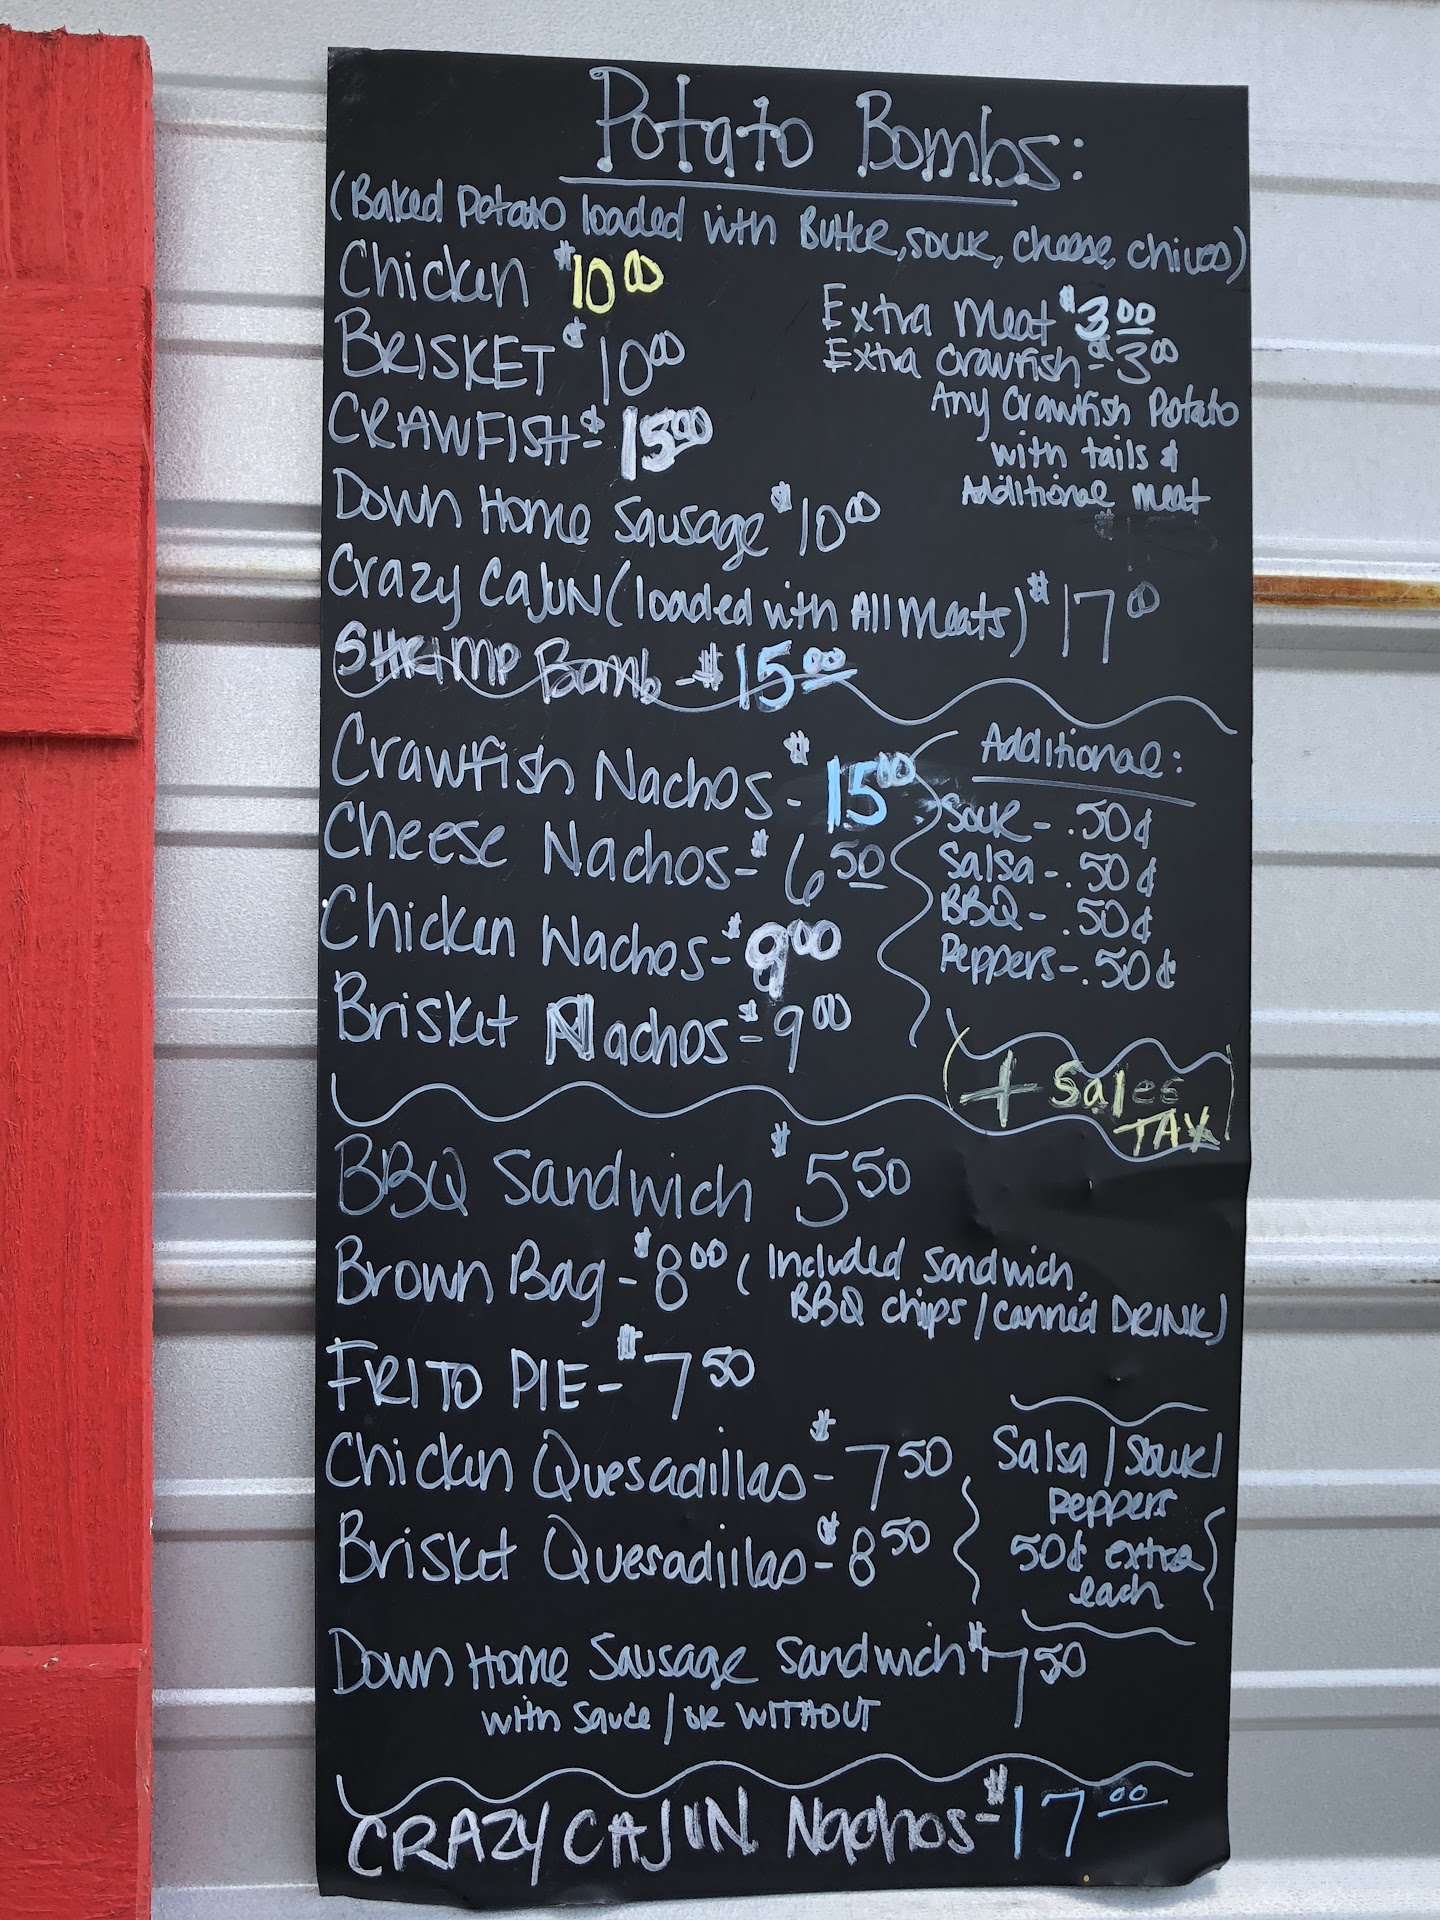 Potato Bombs:
(Baked Potato loaded with Butter, sour, cheese, chives)
Chicken $10.00
BRISKET $10.00
CRAWFISH - $15.00
Extra Meat $3.00
Extra Crawfish - $3.00
Any Crawfish Potato
with tails &
Additional meat
Down Home Sausage $10.00
Crazy CAJUN (loaded with All Meats) $17.00
SHRIMP Bomb - $15.00
Crawfish Nachos - $15.00
Cheese Nachos - $6.50
Chicken Nachos - $9.00
Brisket Nachos - $9.00
Additional:
Sour - .50¢
Salsa - .50¢
BBQ - .50¢
Peppers - .50¢
(+ Sales
TAX)
BBQ Sandwich $5.50
Brown Bag - $8.00 (Included sandwich,
BBQ chips / canned DRINK)
FRITO PIE - $7.50
Chicken Quesadillas - $7.50
Brisket Quesadillas - $8.50
Salsa / Sour /
Peppers
50¢ extra
each
Down Home Sausage Sandwich $7.50
with sauce / or WITHOUT
CRAZY CAJUN Nachos - $17.00